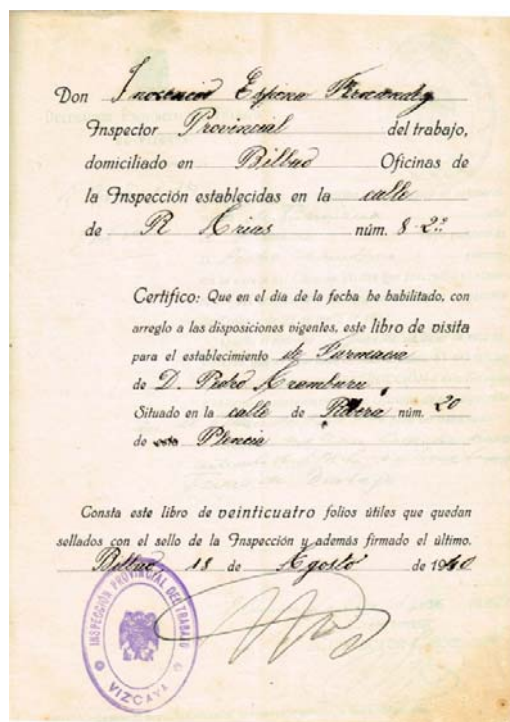 Don Inocencio Espina Fernandez
Inspector Provincial del trabajo,
domiciliado en Bilbao Oficinas de
la Inspección establecidas en la calle
de R Arias núm. 8-2º
Certifico: Que en el día de la fecha he habilitado, con
arreglo a las disposiciones vigentes, este libro de visita
para el establecimiento de Farmacia
de D. Pedro Aramburu
Situado en la calle de Ribera núm. 20
de Plencia
Consta este libro de veinticuatro folios útiles que quedan
sellados con el sello de la Inspección y además firmado el último.
Bilbao, 18 de Agosto de 1940
INSPECCIÓN PROVINCIAL DEL TRABAJO
VIZCAYA